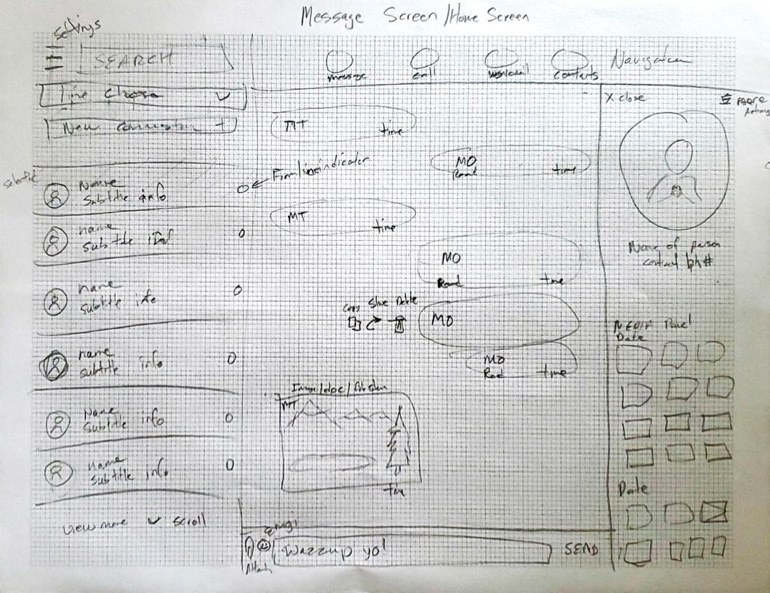 Message Screen/Home Screen
Settings
SEARCH
message
call
voicemail
contacts
Navigation
Line Chosen
New Conversation +
X close
more
MT
time
MO
Read
time
Name
Subtitle info
MT
time
name
subtitle info
MO
Read
time
Name of person
contact ph#
name
subtitle info
Copy
Share
Delete
MO
MEDIA Panel
Date
name
subtitle info
MO
Read
time
Image/doc/
MT
time
Name
Subtitle info
name
Subtitle info
Date
view more
scroll
emoji
Attach
Wazzup yo!
SEND